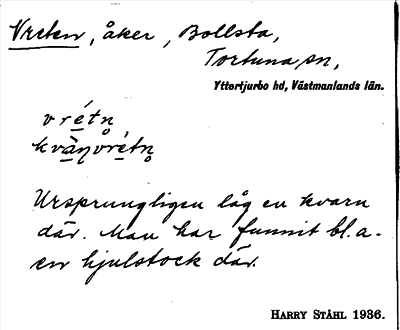 Vreten, åker, Bollsta,
Tortuna sn,
Yttertjurbo hd, Västmanlands län.
vrétn̥
kvàn̥vrétn̥
Ursprungligen låg en kvarn
där. Man har funnit bl.a.
en hjulstock där.
HARRY STÅHL 1936.